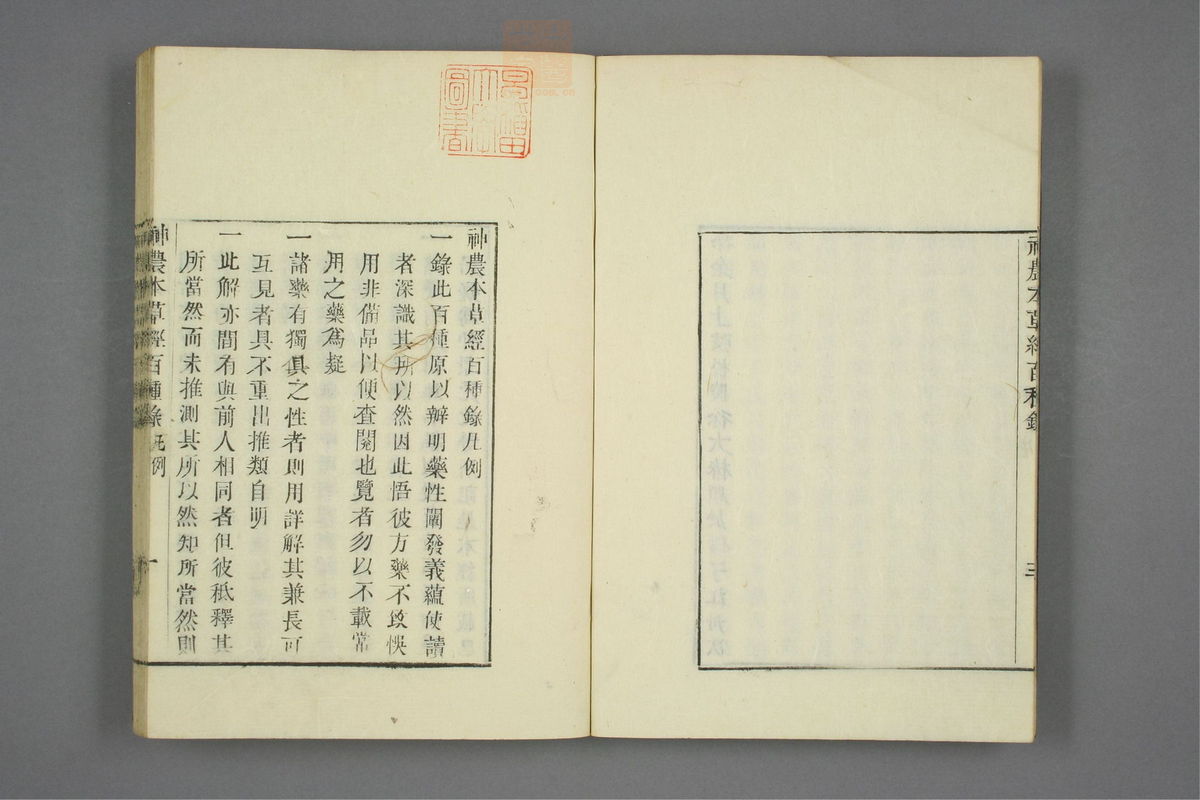 神農本草經百種錄
三
神農本草經百種錄凡例
一錄此百種原以辨明藥性闡發義蘊使讀
者深識其所以然因此悟彼方藥不致悞
用非備品以便查閱也覽者勿以不載常
用之藥爲疑
一諸藥有獨具之性者則用詳解其兼長可
互見者具不重出推類自明
一此解亦間有與前人相同者但彼秪釋其
所當然而未推測其所以然知所當然則
神農本草經百種錄 凡例
一